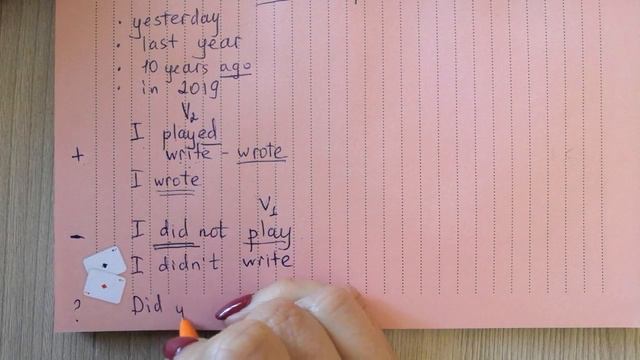 · yesterday
· last year
· 10 years ago
· in 2019
V2
I played
+ write - wrote
I wrote
V1
- I did not play
I didn't write
? Did y